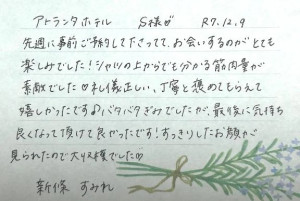 アトランタホテル S様♡ R7.12.9
先週に事前ご予約して下さってて、お会いするのがとても
楽しみでした！シャツの上からでも分かる筋肉量が
素敵でした♡礼儀正しい、丁寧と褒めてもらえて
嬉しかったです♪バタバタぎみでしたが、最後に気持ち
良くなって頂けて良かったです！すっきりしたお顔が
見られたので大収穫でした♡
新條 すみれ